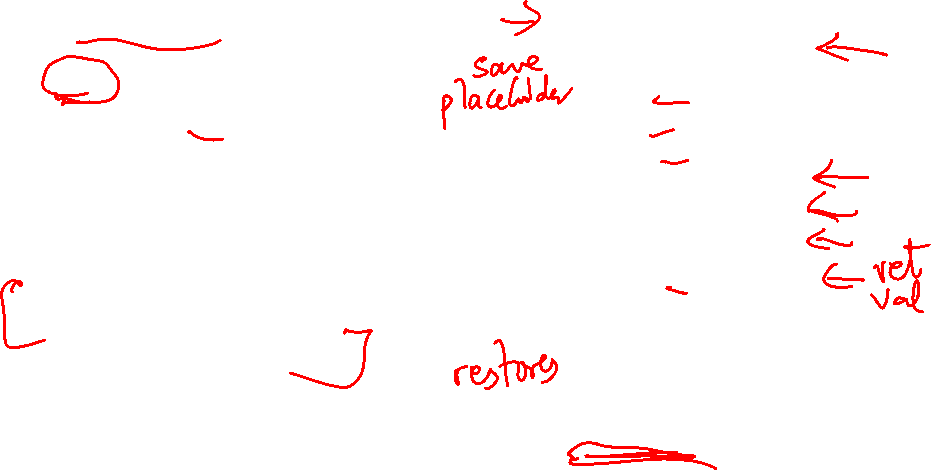 save
placeholder
ret
val
restores